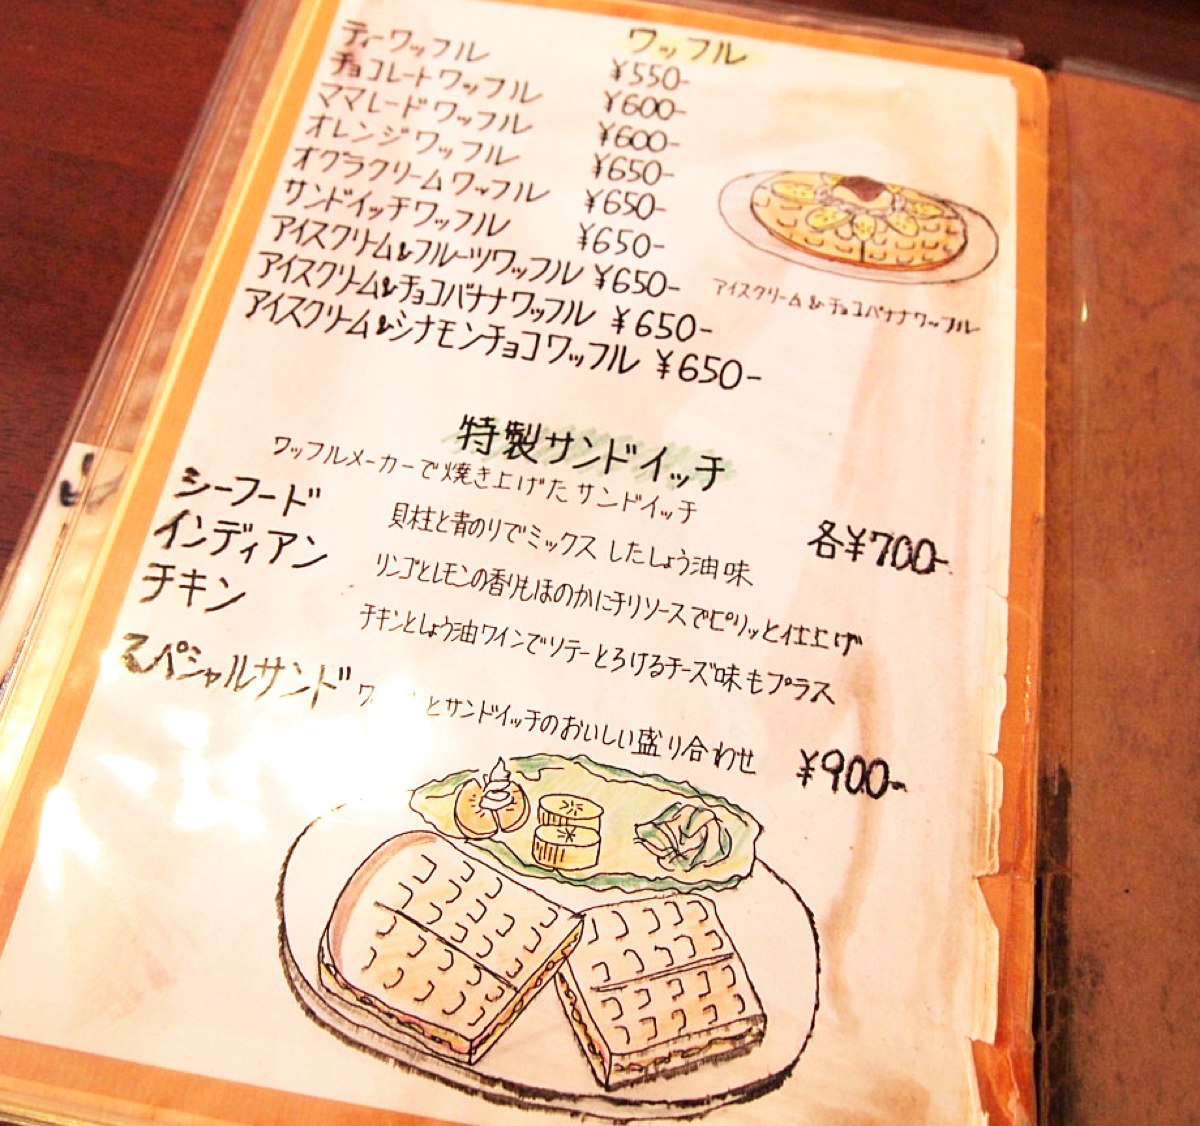 ワッフル
ティーワッフル ¥550-
チョコレートワッフル ¥600-
ママレードワッフル ¥600-
オレンジワッフル ¥650-
オグラクリームワッフル ¥650-
サンドイッチワッフル ¥650-
アイスクリーム&フルーツワッフル ¥650-
アイスクリーム&チョコバナナワッフル ¥650-
アイスクリーム&シナモンチョコワッフル ¥650-
アイスクリーム&チョコバナナワッフル
特製サンドイッチ
ワッフルメーカーで焼き上げたサンドイッチ
各¥700-
シーフード 貝柱と青のりでミックスしたしょう油味
インディアン リンゴとレモンの香りもほのかにチリソースでピリッと仕上げ
チキン チキンとしょう油ワインでソテーとろけるチーズ味もプラス
スペシャルサンド とサンドイッチのおいしい盛り合わせ ¥900-